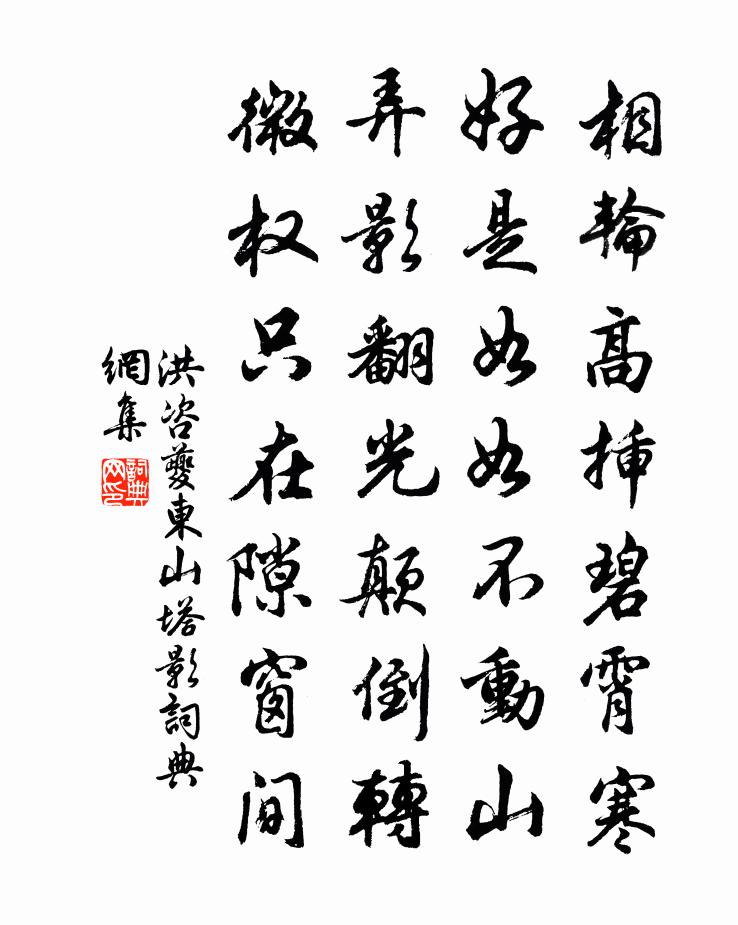 相輪高揷碧霄寒
好是如如不動山
弄影翻光顛倒轉
微权只在隙窗间
洪咨夔東山塔影詞典
網集
詞典
网印